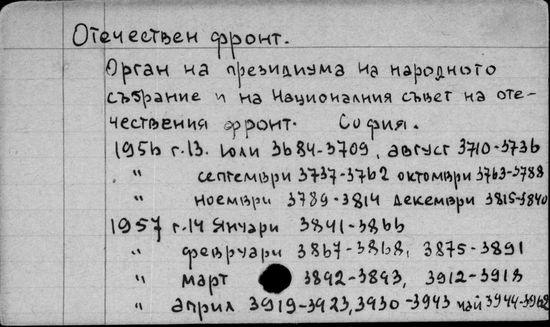 Отечествен фронт.
Орган на президиума на народното
събрание и на Националния съвет на оте-
чествения фронт. София.
1956 г.13. Юли 3684-3709, август 3710-3736
" септември 3737-3762 октомври 3763-3788
" ноември 3789-3814 декември 3815-3840
1957 г.14 Януари 3841-3866
" февруари 3867-3868, 3875-3891
" март 3892-3893, 3912-3918
" април 3919-3923, 3930-3943 май 3944-3968